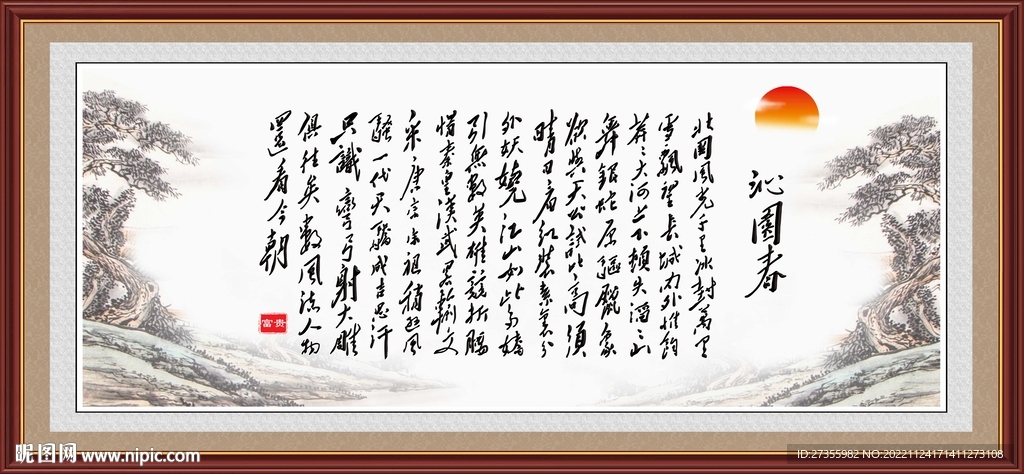 沁園春
北國風光千里冰封萬里
雪飄望長城內外惟餘
莽〻大河上下頓失滔〻山
舞銀蛇原驅臘象
欲與天公試比高須
晴日看紅裝素裹分
外妖嬈江山如此多嬌
引無數英雄競折腰
惜秦皇漢武略輸文
采唐宗宋祖稍遜風
騷一代天驕成吉思汗
只識彎弓射大雕
俱往矣數風流人物
還看今朝
富贵
昵图网 www.nipic.com
ID:27355982 NO:20221124171411273108